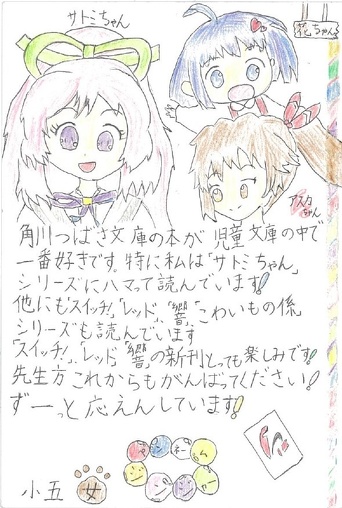 サトミちゃん
花ちゃん
アスカちゃん
角川つばさ文庫の本が児童文庫の中で
一番好きです。特に私は「サトミちゃん」
シリーズにハマって読んでいます!
他にも「スイッチ!」「レッド」、「響」、「こわいもの係」
シリーズも読んでいます
「スイッチ!」、「レッド」、「響」の新刊とっても楽しみです!
先生方これからもがんばってください!
ずーっと応えんしています!
小五 女